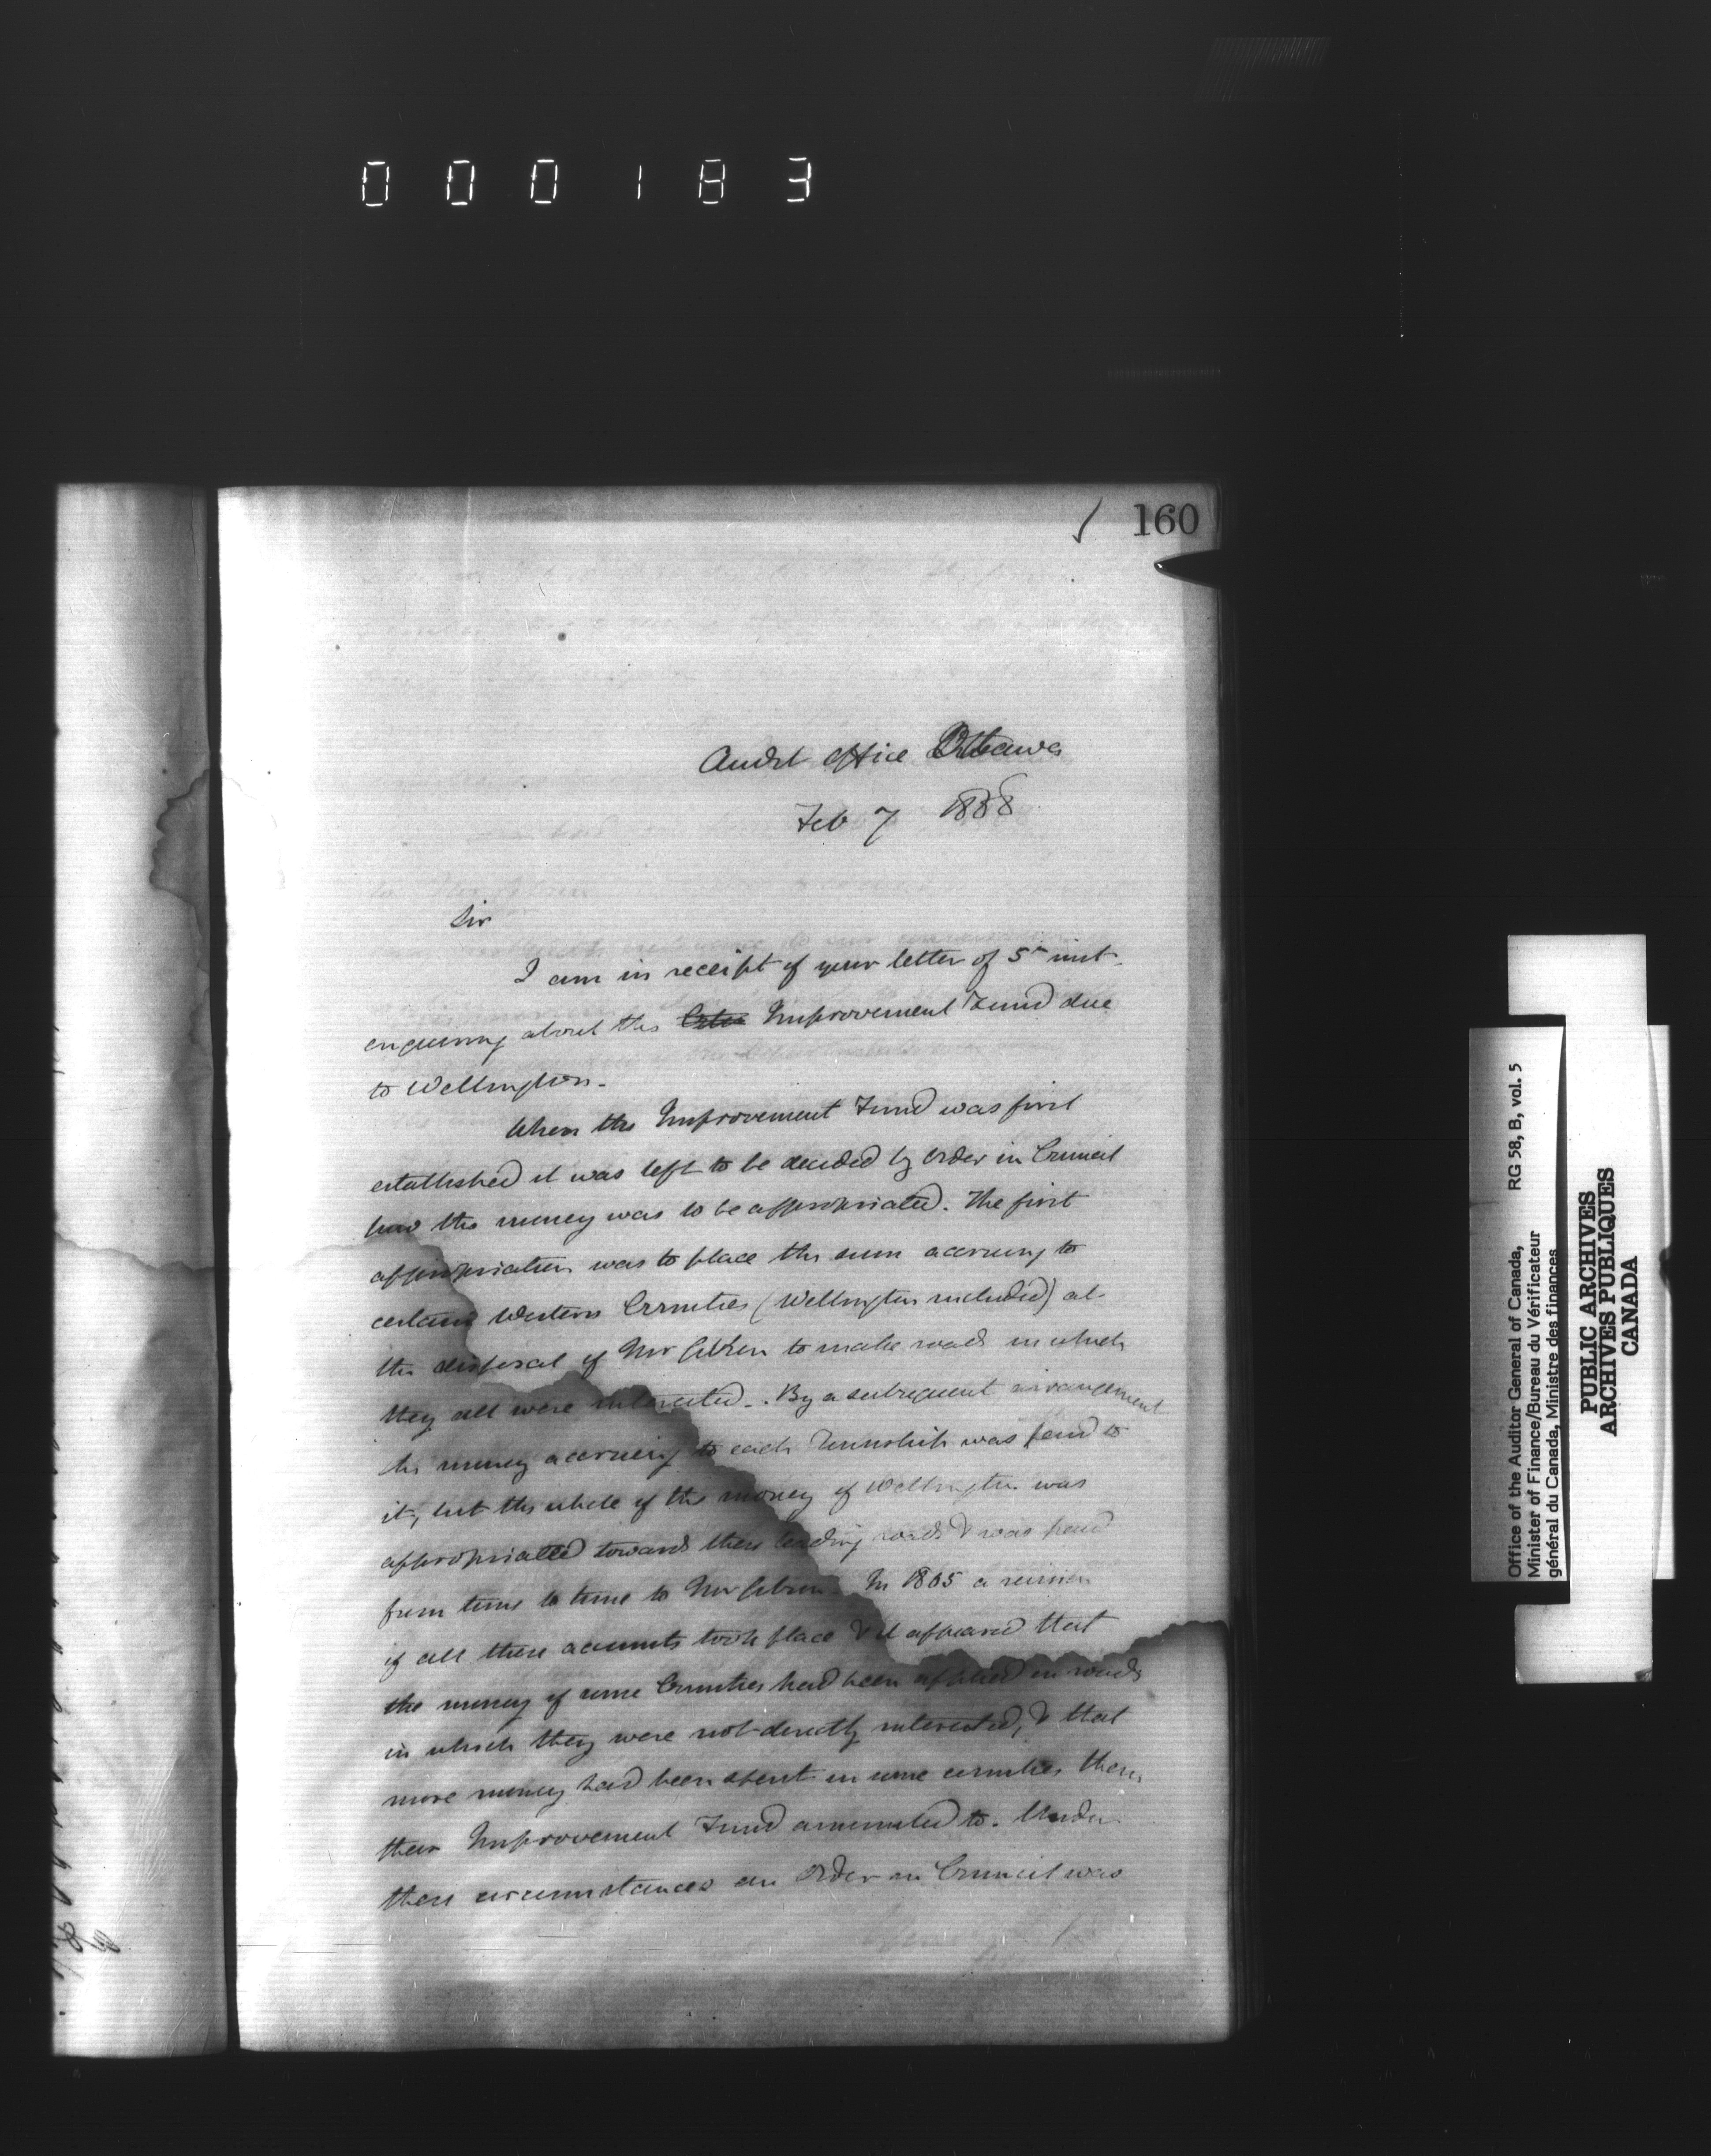 000183
160
Audit Office Ottawa
Feb 7 1868
Sir
I am in receipt of your letter of 5th inst.
enquiring about the Improvement Fund due
to Wellington.
When the Improvement Fund was first
established it was left to be decided by Order in Council
how the money was to be appropriated. The first
appropriation was to place the sum accruing to
certain Western Counties (Wellington included) at
the disposal of Mr Gibson to make roads in which
they all were interested. By a subsequent arrangement
the money accruing to each Township was paid to
it, but the whole of the money of Wellington was
appropriated towards these leading roads & was paid
from time to time to Mr Gibson. In 1865 a revision
of all these accounts took place & it appeared that
the money of some Counties had been applied on roads
in which they were not directly interested, & that
more money had been spent in some counties than
their Improvement Fund amounted to. Under
these circumstances an Order in Council was
Office of the Auditor General of Canada, RG 58, B, vol. 5
Minister of Finance/Bureau du Vérificateur
général du Canada, Ministre des finances
PUBLIC ARCHIVES
ARCHIVES PUBLIQUES
CANADA